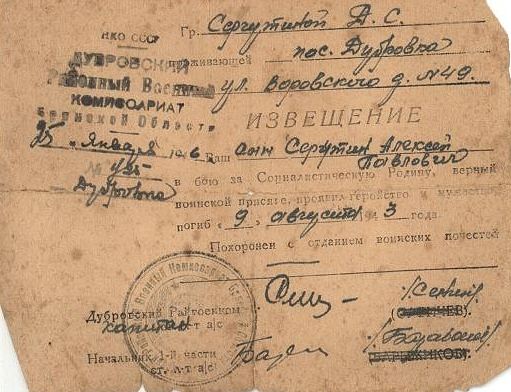 НКО СССР
ДУБРОВСКИЙ
Районный Военный
КОМИССАРИАТ
Брянской Области
25 " января 1946
№ 425
Дубровка
Гр. Сергутиной Д. С.
проживающей пос. Дубровка
ул. Воровского д. №49.
ИЗВЕЩЕНИЕ
Ваш сын Сергутин Алексей
Павлович
в бою за Социалистическую Родину, верный
воинской присяге, проявил геройство и мужество
погиб « 9 » августа 43 года.
Похоронен с отданием воинских почестей
Дубровский Райвоенком
капитан
Начальник 1-й части
ст. л-т а/с